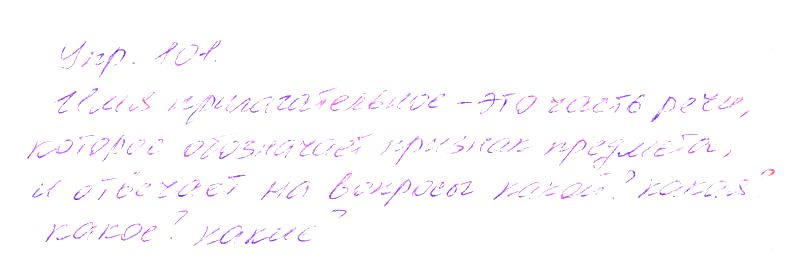 Упр. 101.
Имя прилагательное – это часть речи,
которое обозначает признак предмета,
и отвечает на вопросы какой? какая?
какое? какие?